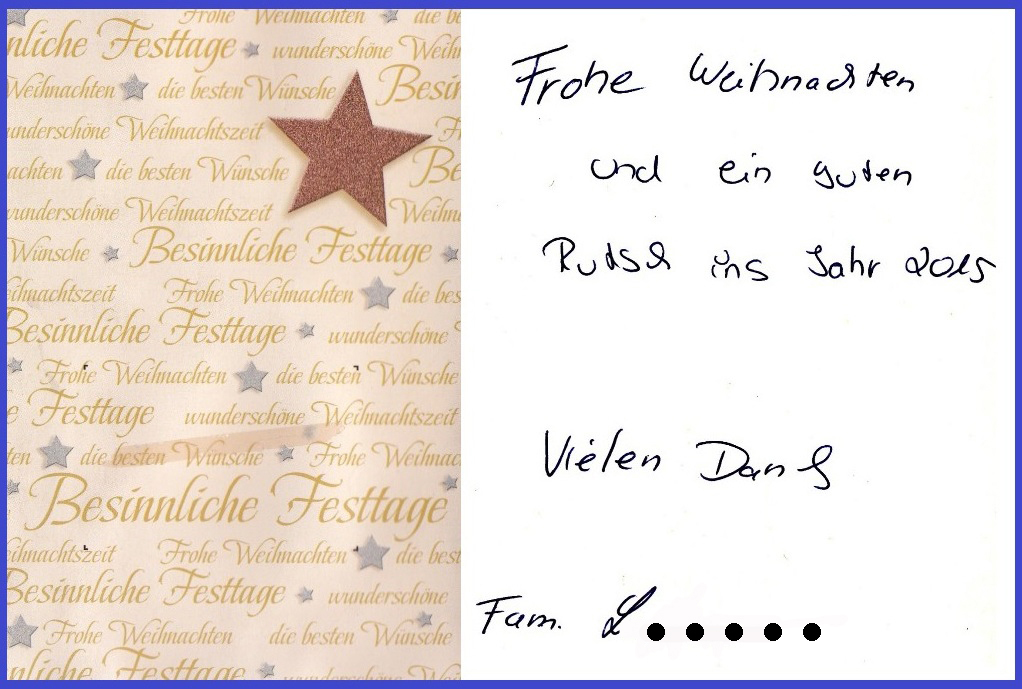 Frohe Weihnachten die be
nliche Festtage wunderschöne Weih
Weihnachten die besten Wünsche Besin
underschöne Weihnachtszeit Fr
achten die besten Wünsche Be
wunderschöne Weihnachtszeit Weihn
Wünsche Besinnliche Festtage
eihnachtszeit Frohe Weihnachten die bes
Besinnliche Festtage wunderschöne
Frohe Weihnachten die besten Wünsche
e Festtage wunderschöne Weihnachtszeit
ten die besten Wünsche Frohe Weihnac
Besinnliche Festtage
eihnachtszeit Frohe Weihnachten die best
Besinnliche Festtage wunderschöne
Frohe Weihnachten die besten Wünsche
nliche Festtage wunderschöne Weih
Frohe Weihnachten
und ein guten
Rutsch ins Jahr 2015
Vielen Dank
Fam. L